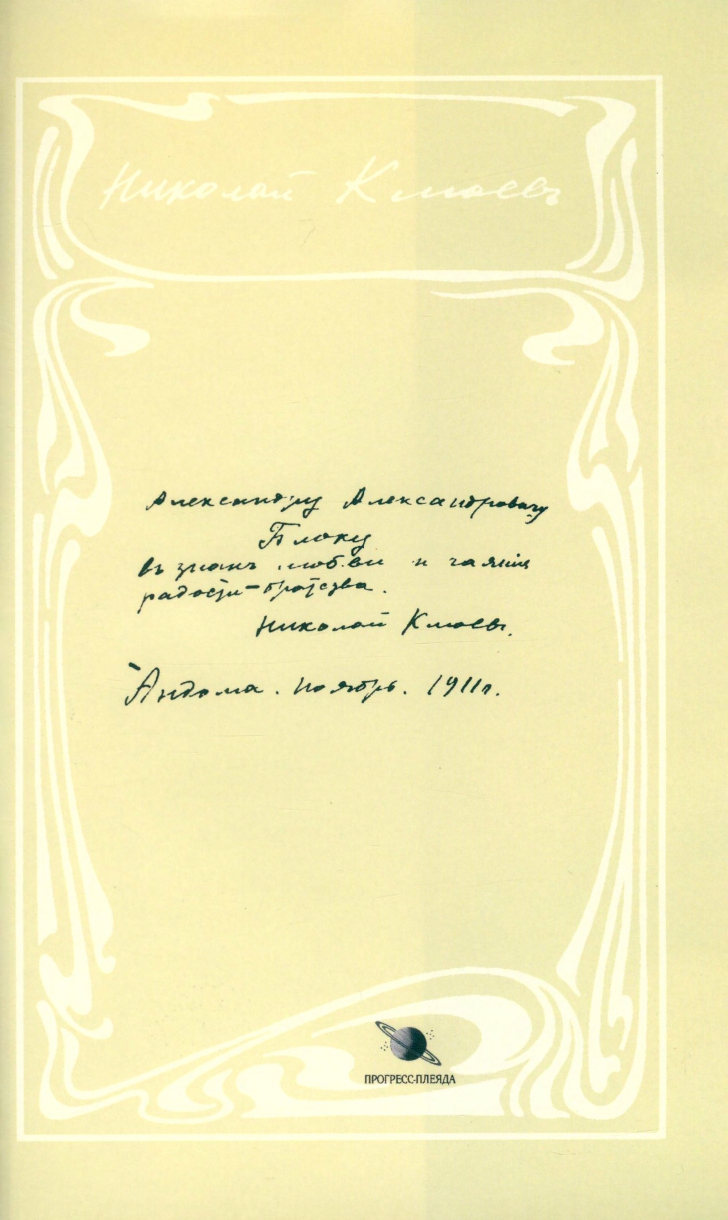 Николай Клюевъ
Александру Александровичу
Блоку
въ знакъ любви и чаянія
радости-братства.
Николай Клюевъ.
Андома. ноябрь. 1911г.
ПРОГРЕСС-ПЛЕЯДА